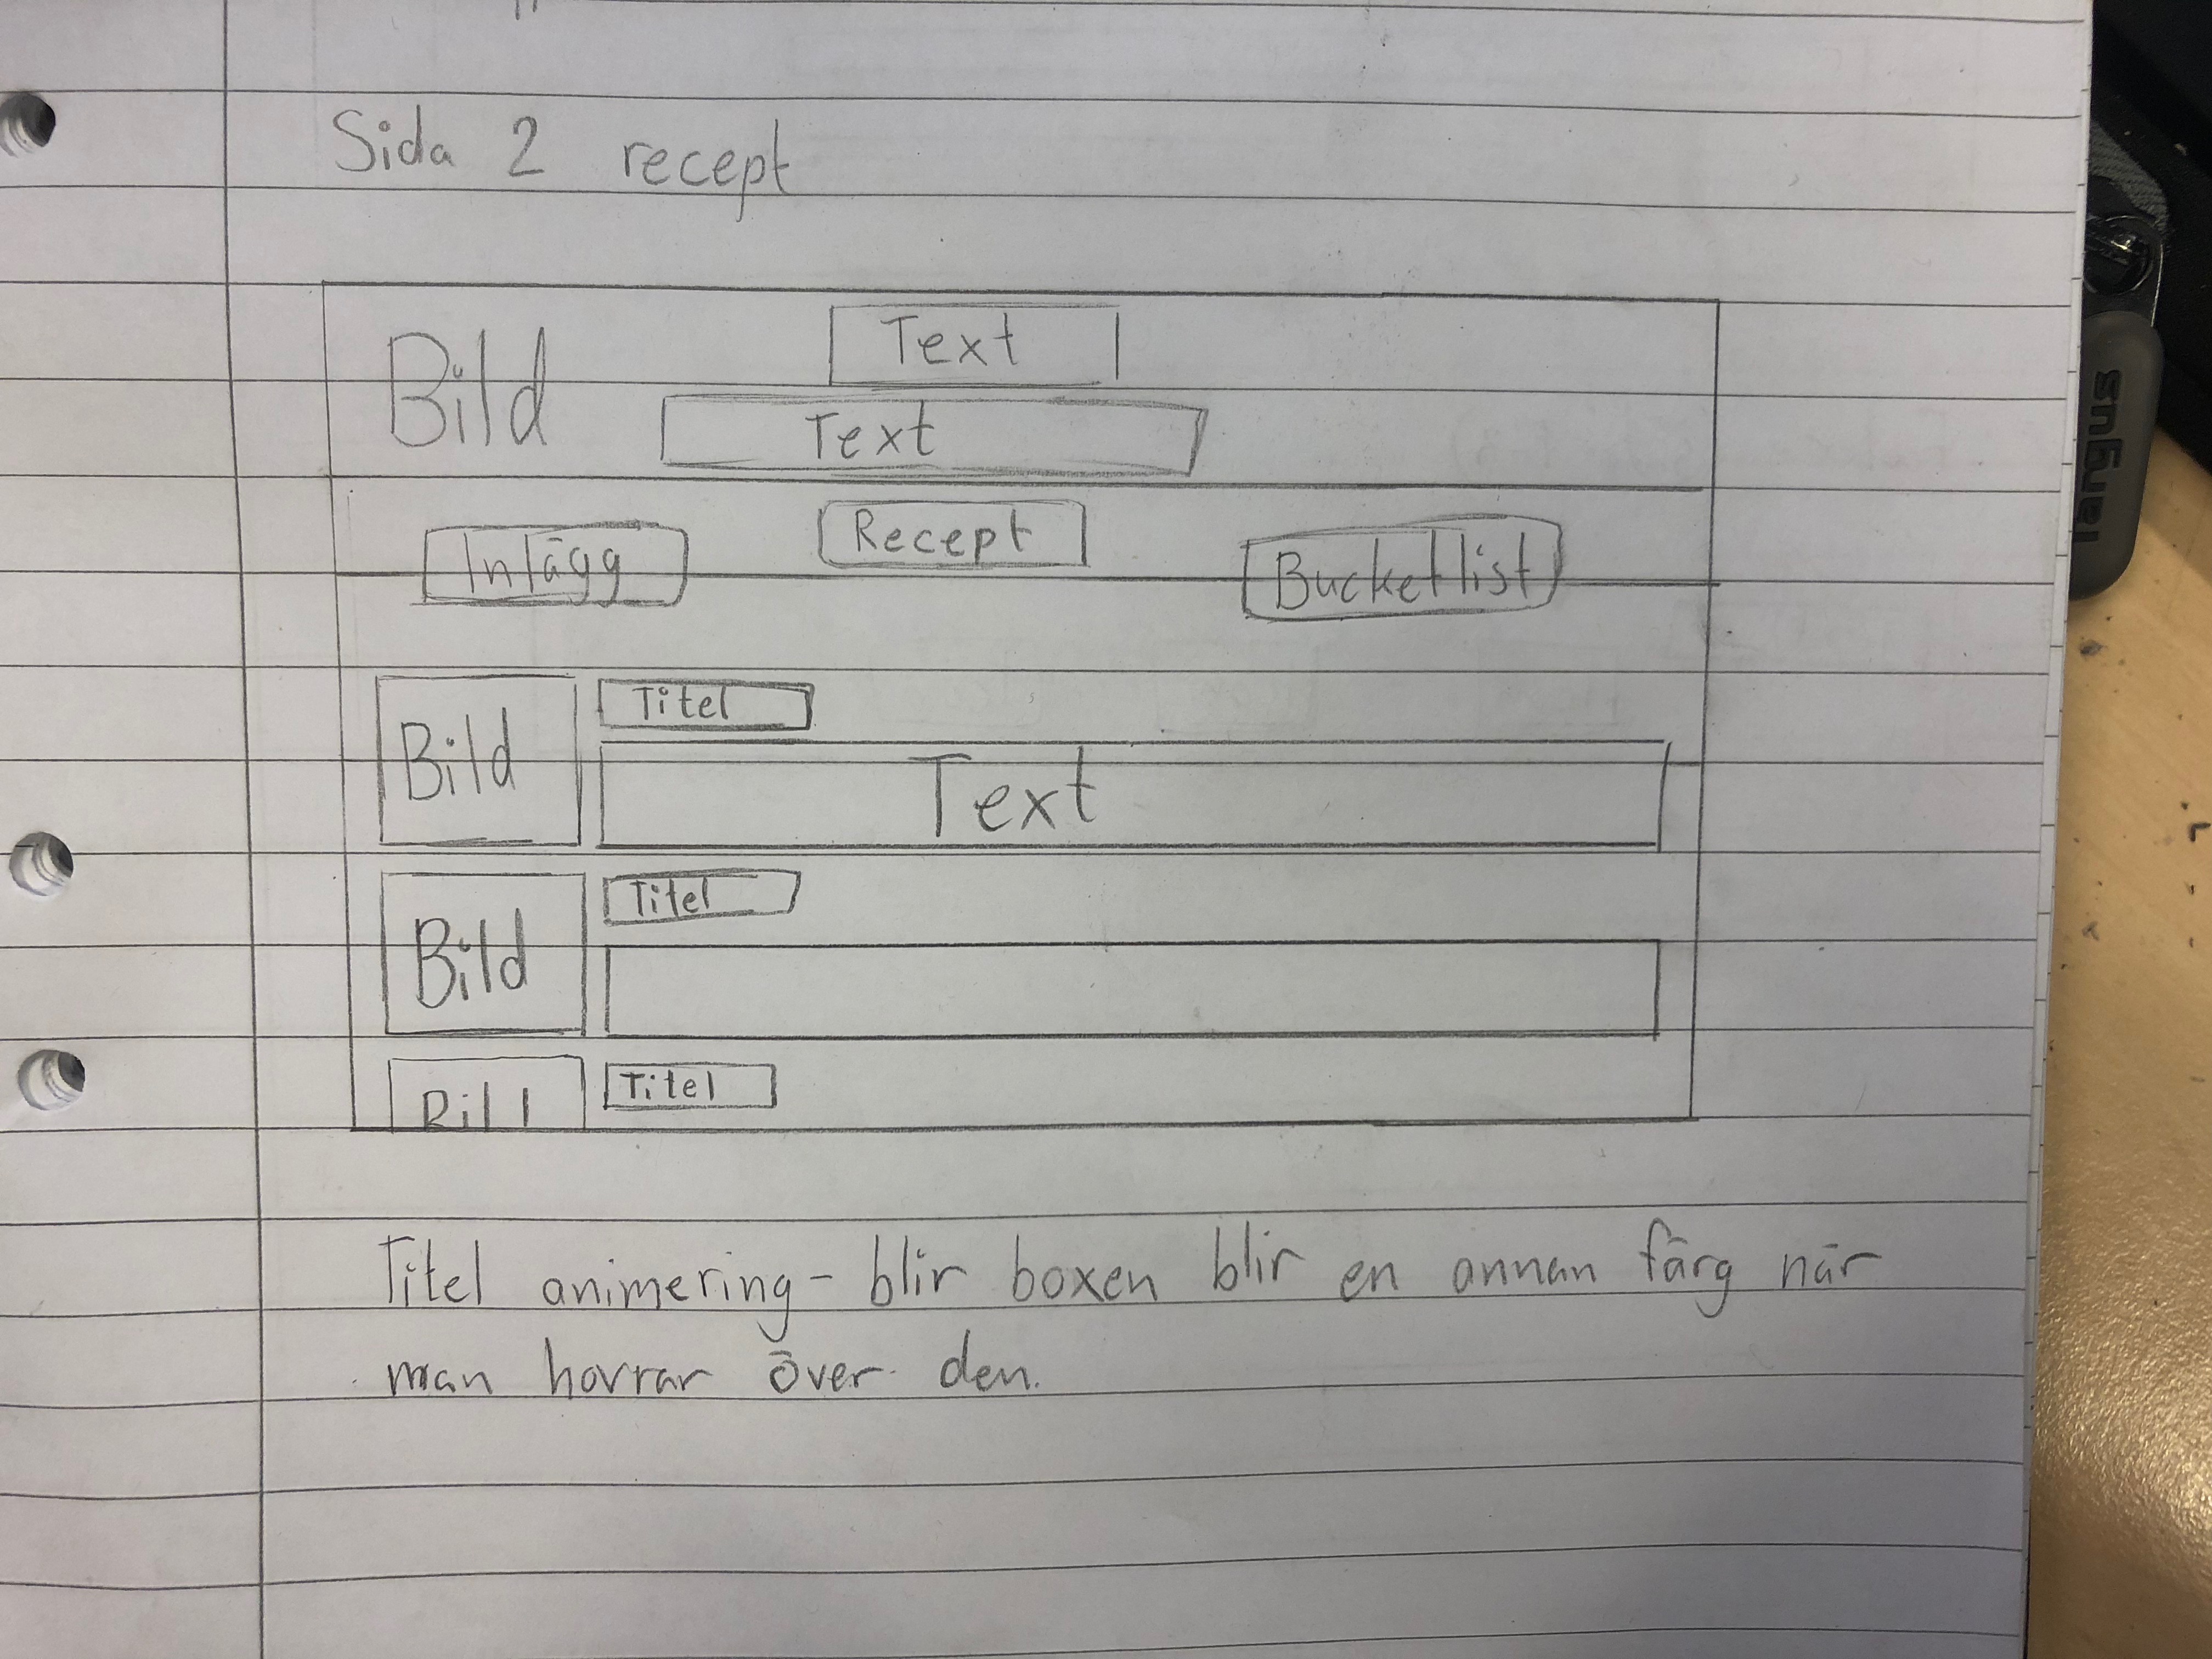 Sida 2 recept
Bild
Text
Text
Inlägg
Recept
Bucketlist
Bild
Titel
Text
Bild
Titel
Bild
Titel
Titel animering - blir boxen blir en annan färg när
man hovrar över den.
targus